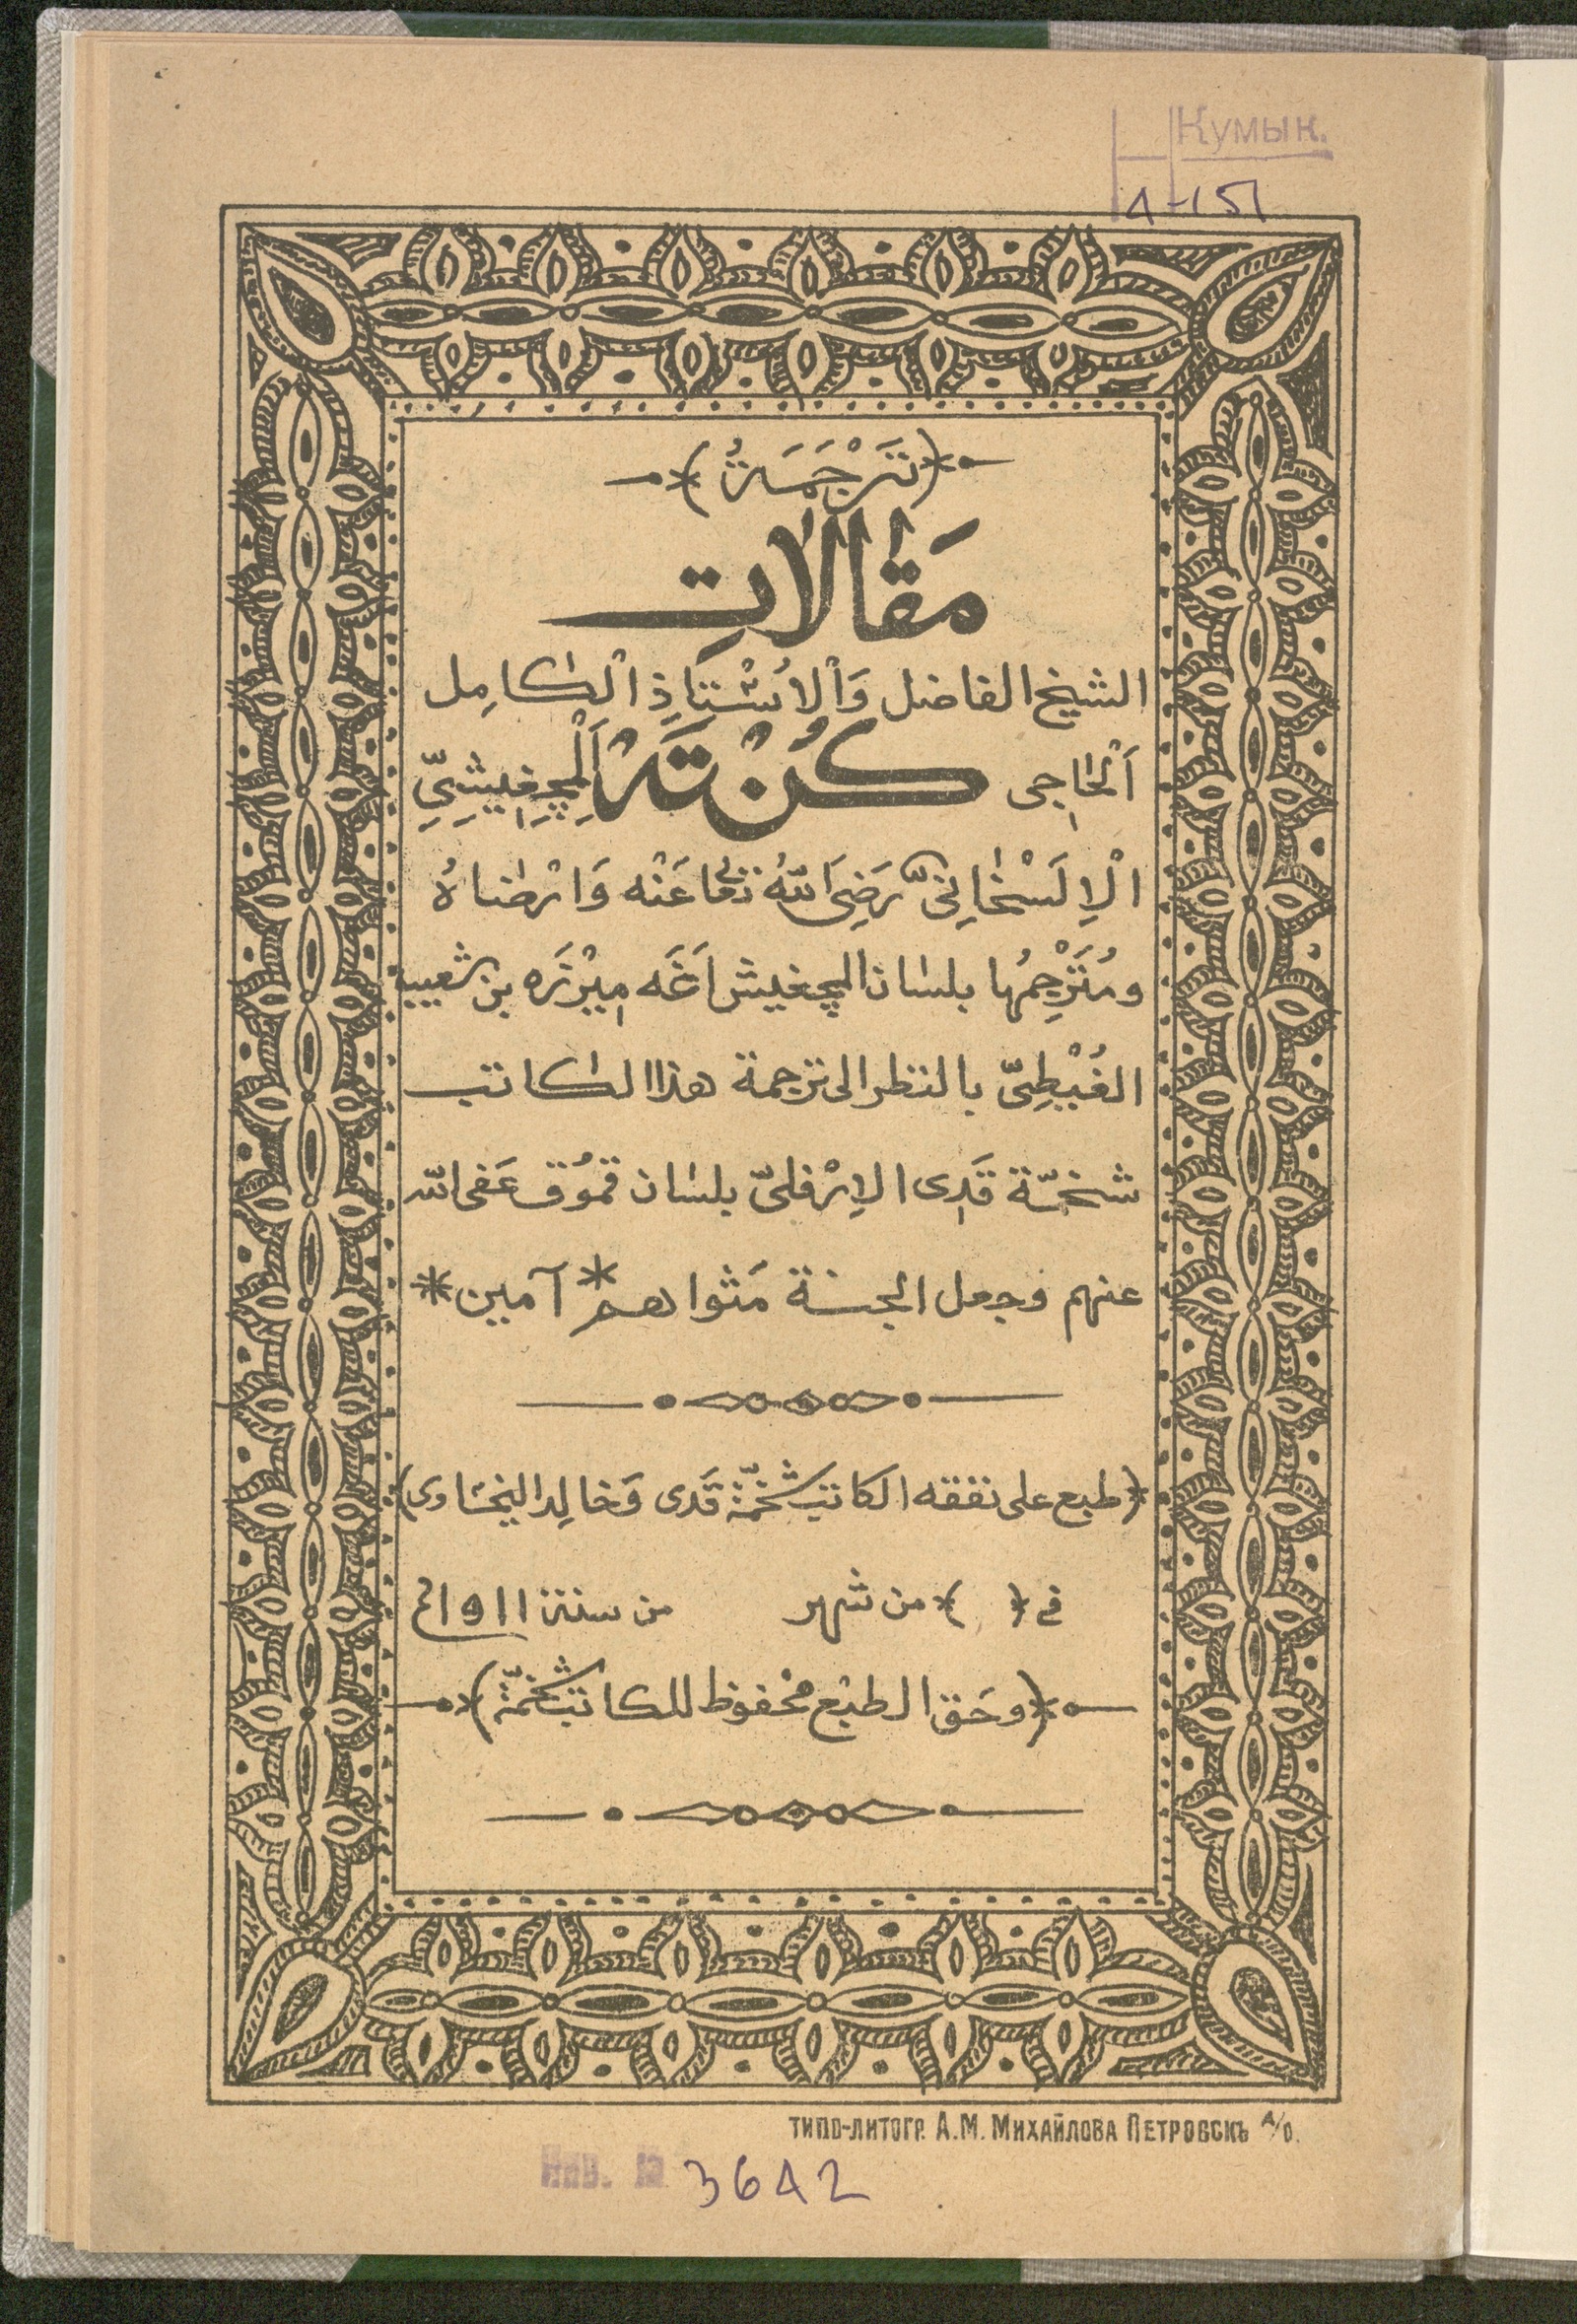 Кумык.
1-151
(تَرْجَمَةُ)
مَقَالَاتِ
الشيخ الفاضل وَالْاُسْتَاذِ الْكَامِل
اَلْحَاجِى كُنْتَهْ اَلْمِچِغِيشِىِّ
الْاِلَسْخَانِىّ رَضِىَ اللّٰهُ تعٰا عَنْه وَارْضَاهُ
ومُتَرْجِمُها بلسان المچغيش اَغَه مِيْرْزَه بن شعيب
الغُبْطِىّ بالنظر الى ترجمة هذا الكاتب
قَدِى الاِرْفلىّ بلسان قمُوُق عَفى اللّٰه
عنهم وجعل الجنة مَثْواهم * آمين *
(طبع على نفقه الكاتب قَدى وَخالِد)
فى ( ) من شهر من سنة ١٩١١م
(وحَق الطبْع محْفوظ للكاتب)
ТИПО-ЛИТОГР. А.М. МИХАЙЛОВА ПЕТРОВСКЪ Д/О.
Инв. № 3642